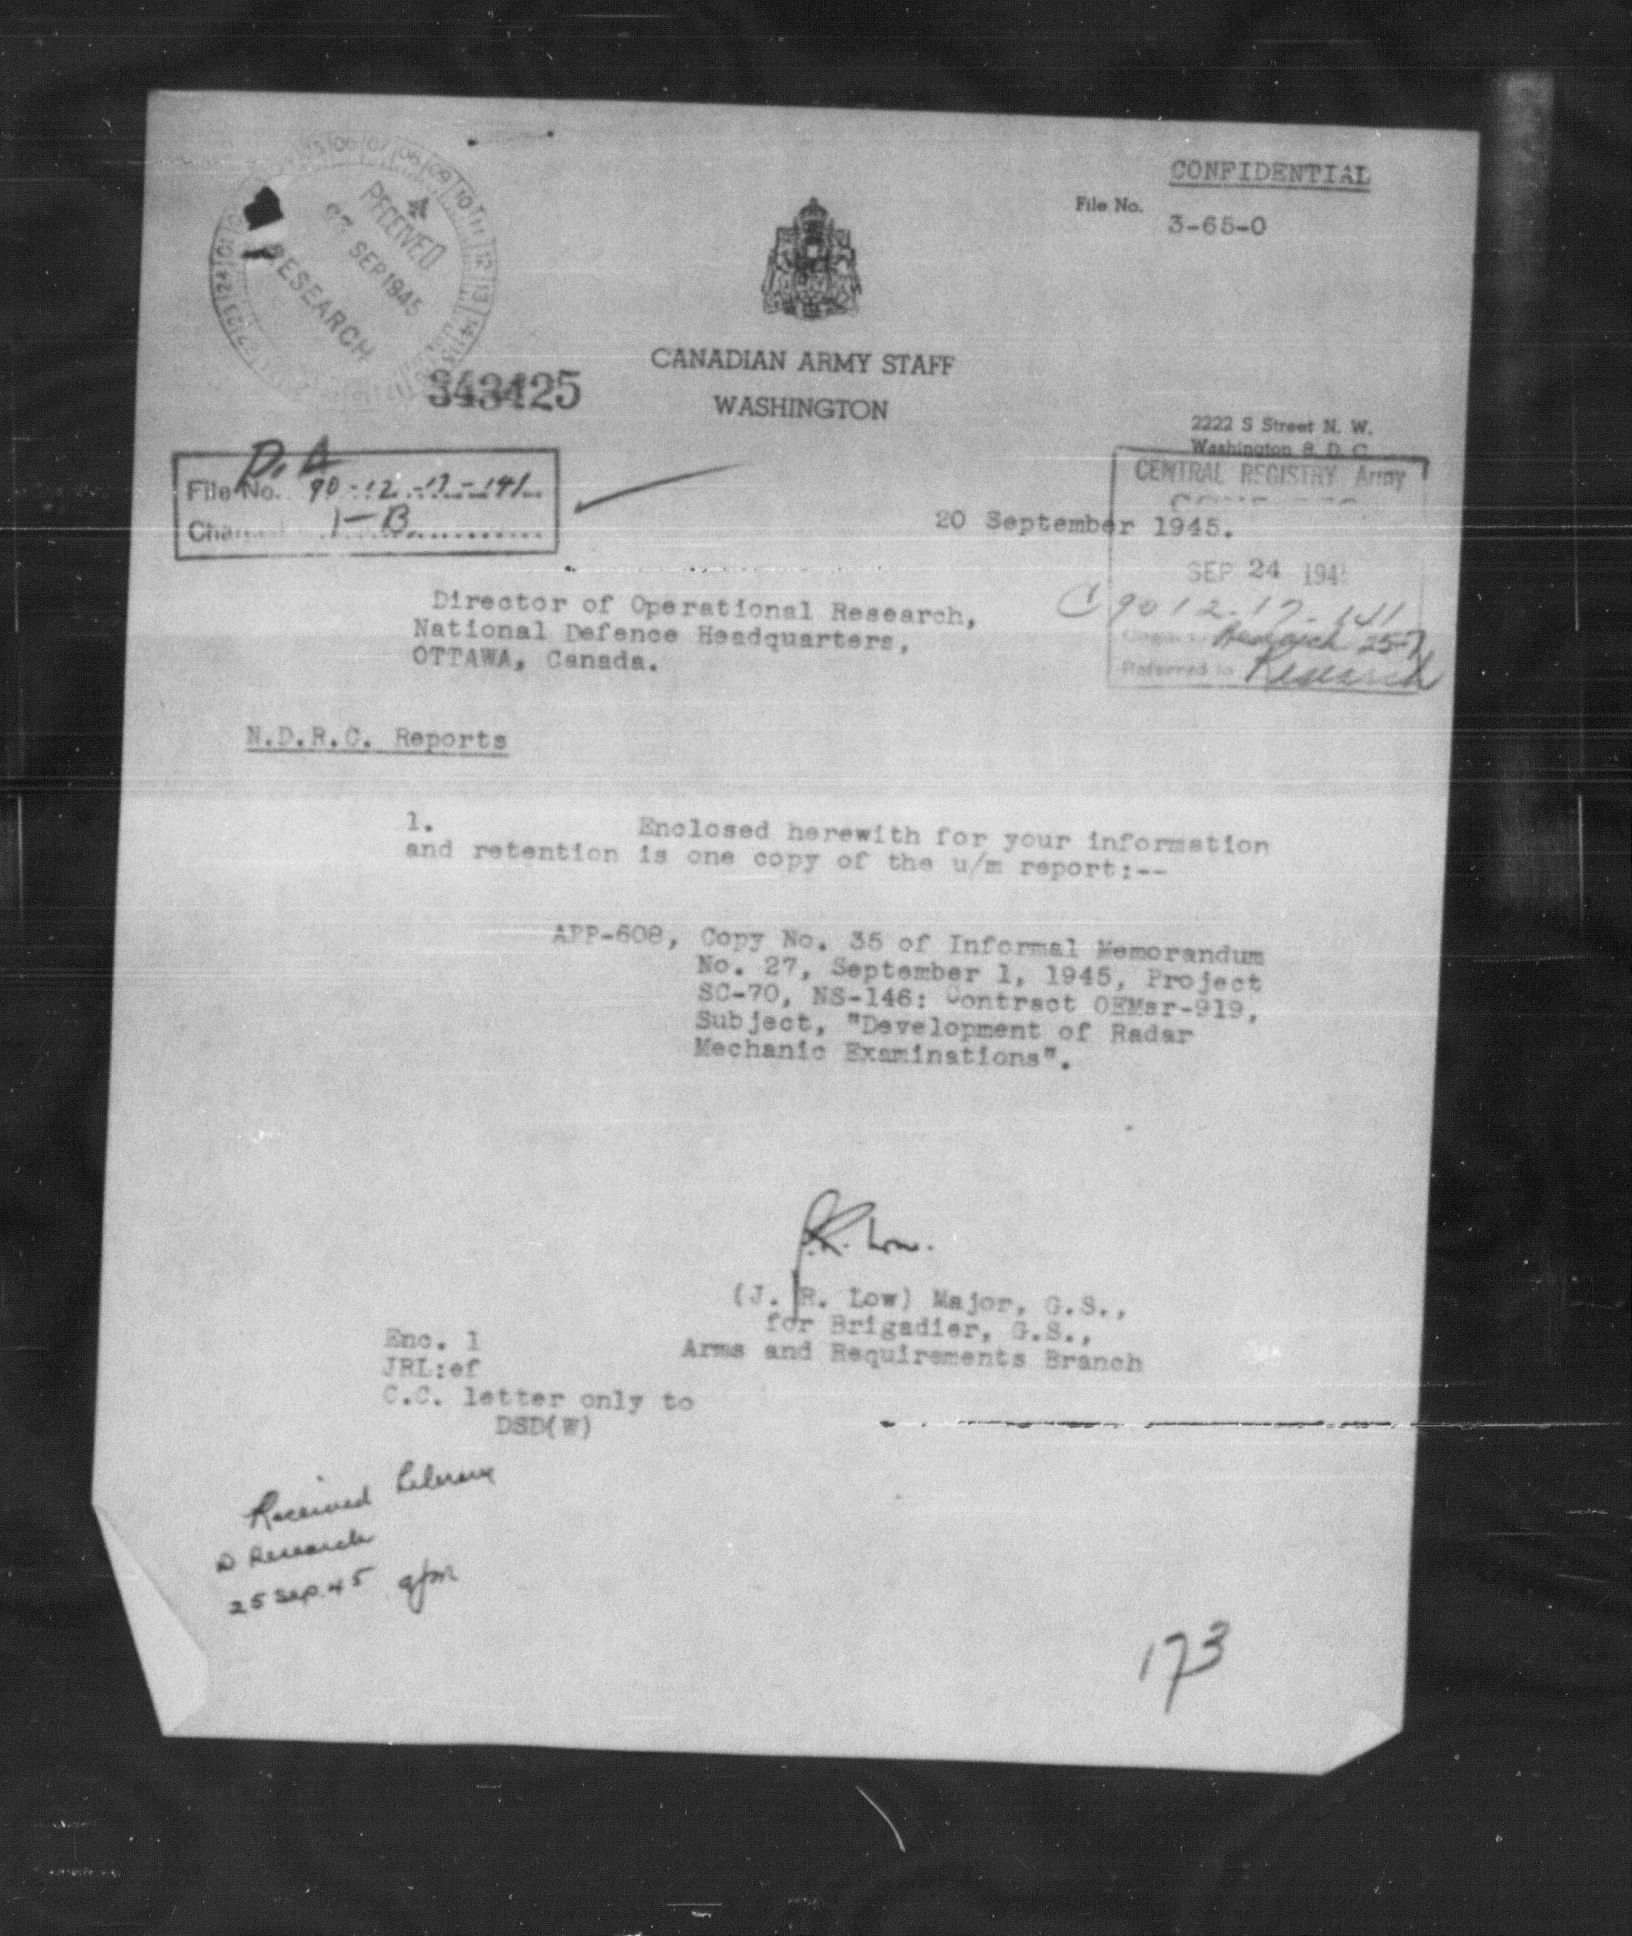 CONFIDENTIAL
File No.
3-65-0
RECEIVED
SEP 1945
RESEARCH
343425
CANADIAN ARMY STAFF
WASHINGTON
2222 S Street N. W.
Washington 8 D. C.
D. A
File No. 90-12-17-141
1-B
CENTRAL REGISTRY Army
20 September 1945.
SEP 24 194
9012-17-141
Research 25-9
Referred to Research
Director of Operational Research,
National Defence Headquarters,
OTTAWA, Canada.
N.D.R.C. Reports
1. Enclosed herewith for your information
and retention is one copy of the u/m report:--
APP-608, Copy No. 35 of Informal Memorandum
No. 27, September 1, 1945, Project
SC-70, NS-146: Contract OEMsr-919,
Subject, "Development of Radar
Mechanic Examinations".
J.R. Low.
(J. R. Low) Major, G.S.,
for Brigadier, G.S.,
Arms and Requirements Branch
Enc. 1
JRL:ef
C.C. letter only to
DSD(W)
Received
D Research
25 Sep. 45
173